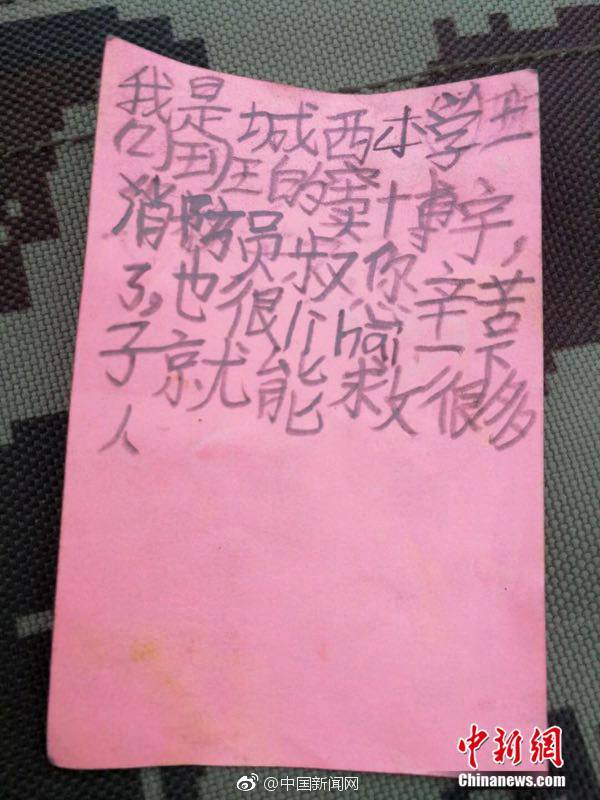 我是城西小学
班的窦博宇,
消防员叔你辛苦
了,也很hai一下
子就能救很多
人
@中国新闻网
中新网
Chinanews.com